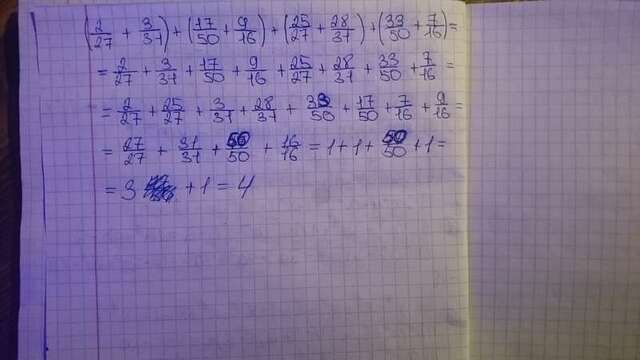 (2/27 + 3/31) + (17/50 + 9/16) + (25/27 + 28/31) + (33/50 + 7/16) =
= 2/27 + 3/31 + 17/50 + 9/16 + 25/27 + 28/31 + 33/50 + 7/16 =
= 2/27 + 25/27 + 3/31 + 28/31 + 33/50 + 17/50 + 7/16 + 9/16 =
= 27/27 + 31/31 + 50/50 + 16/16 = 1 + 1 + 50/50 + 1 =
= 3 + 1 = 4